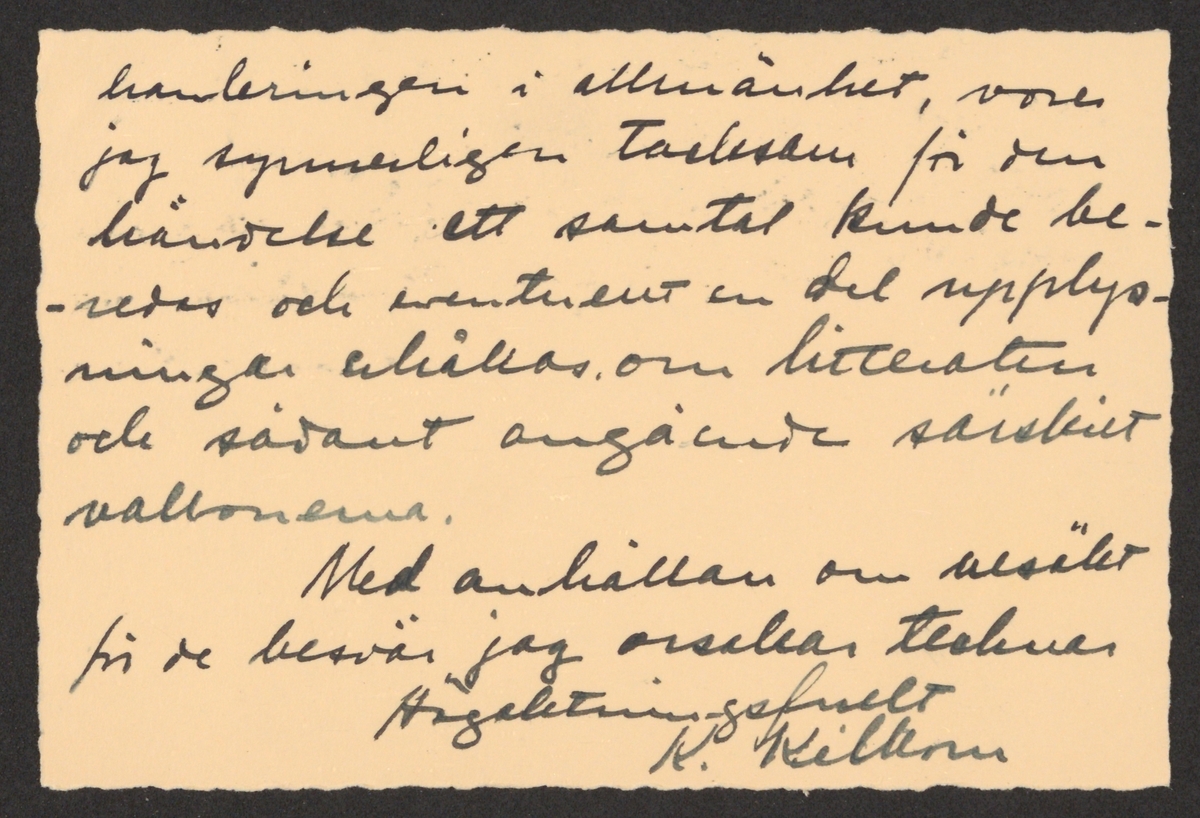 hanteringen i allmänhet, vore
jag synnerligen tacksam för den
händelse ett samtal kunde be-
-redas och eventuellt en del upplys-
ningar erhållas om litteratur
och sådant angående särskilt
vallonerna.
Med anhållan om ursäkt
för de besvär jag orsakar tecknar
Högaktningsfullt
K. Kilbom